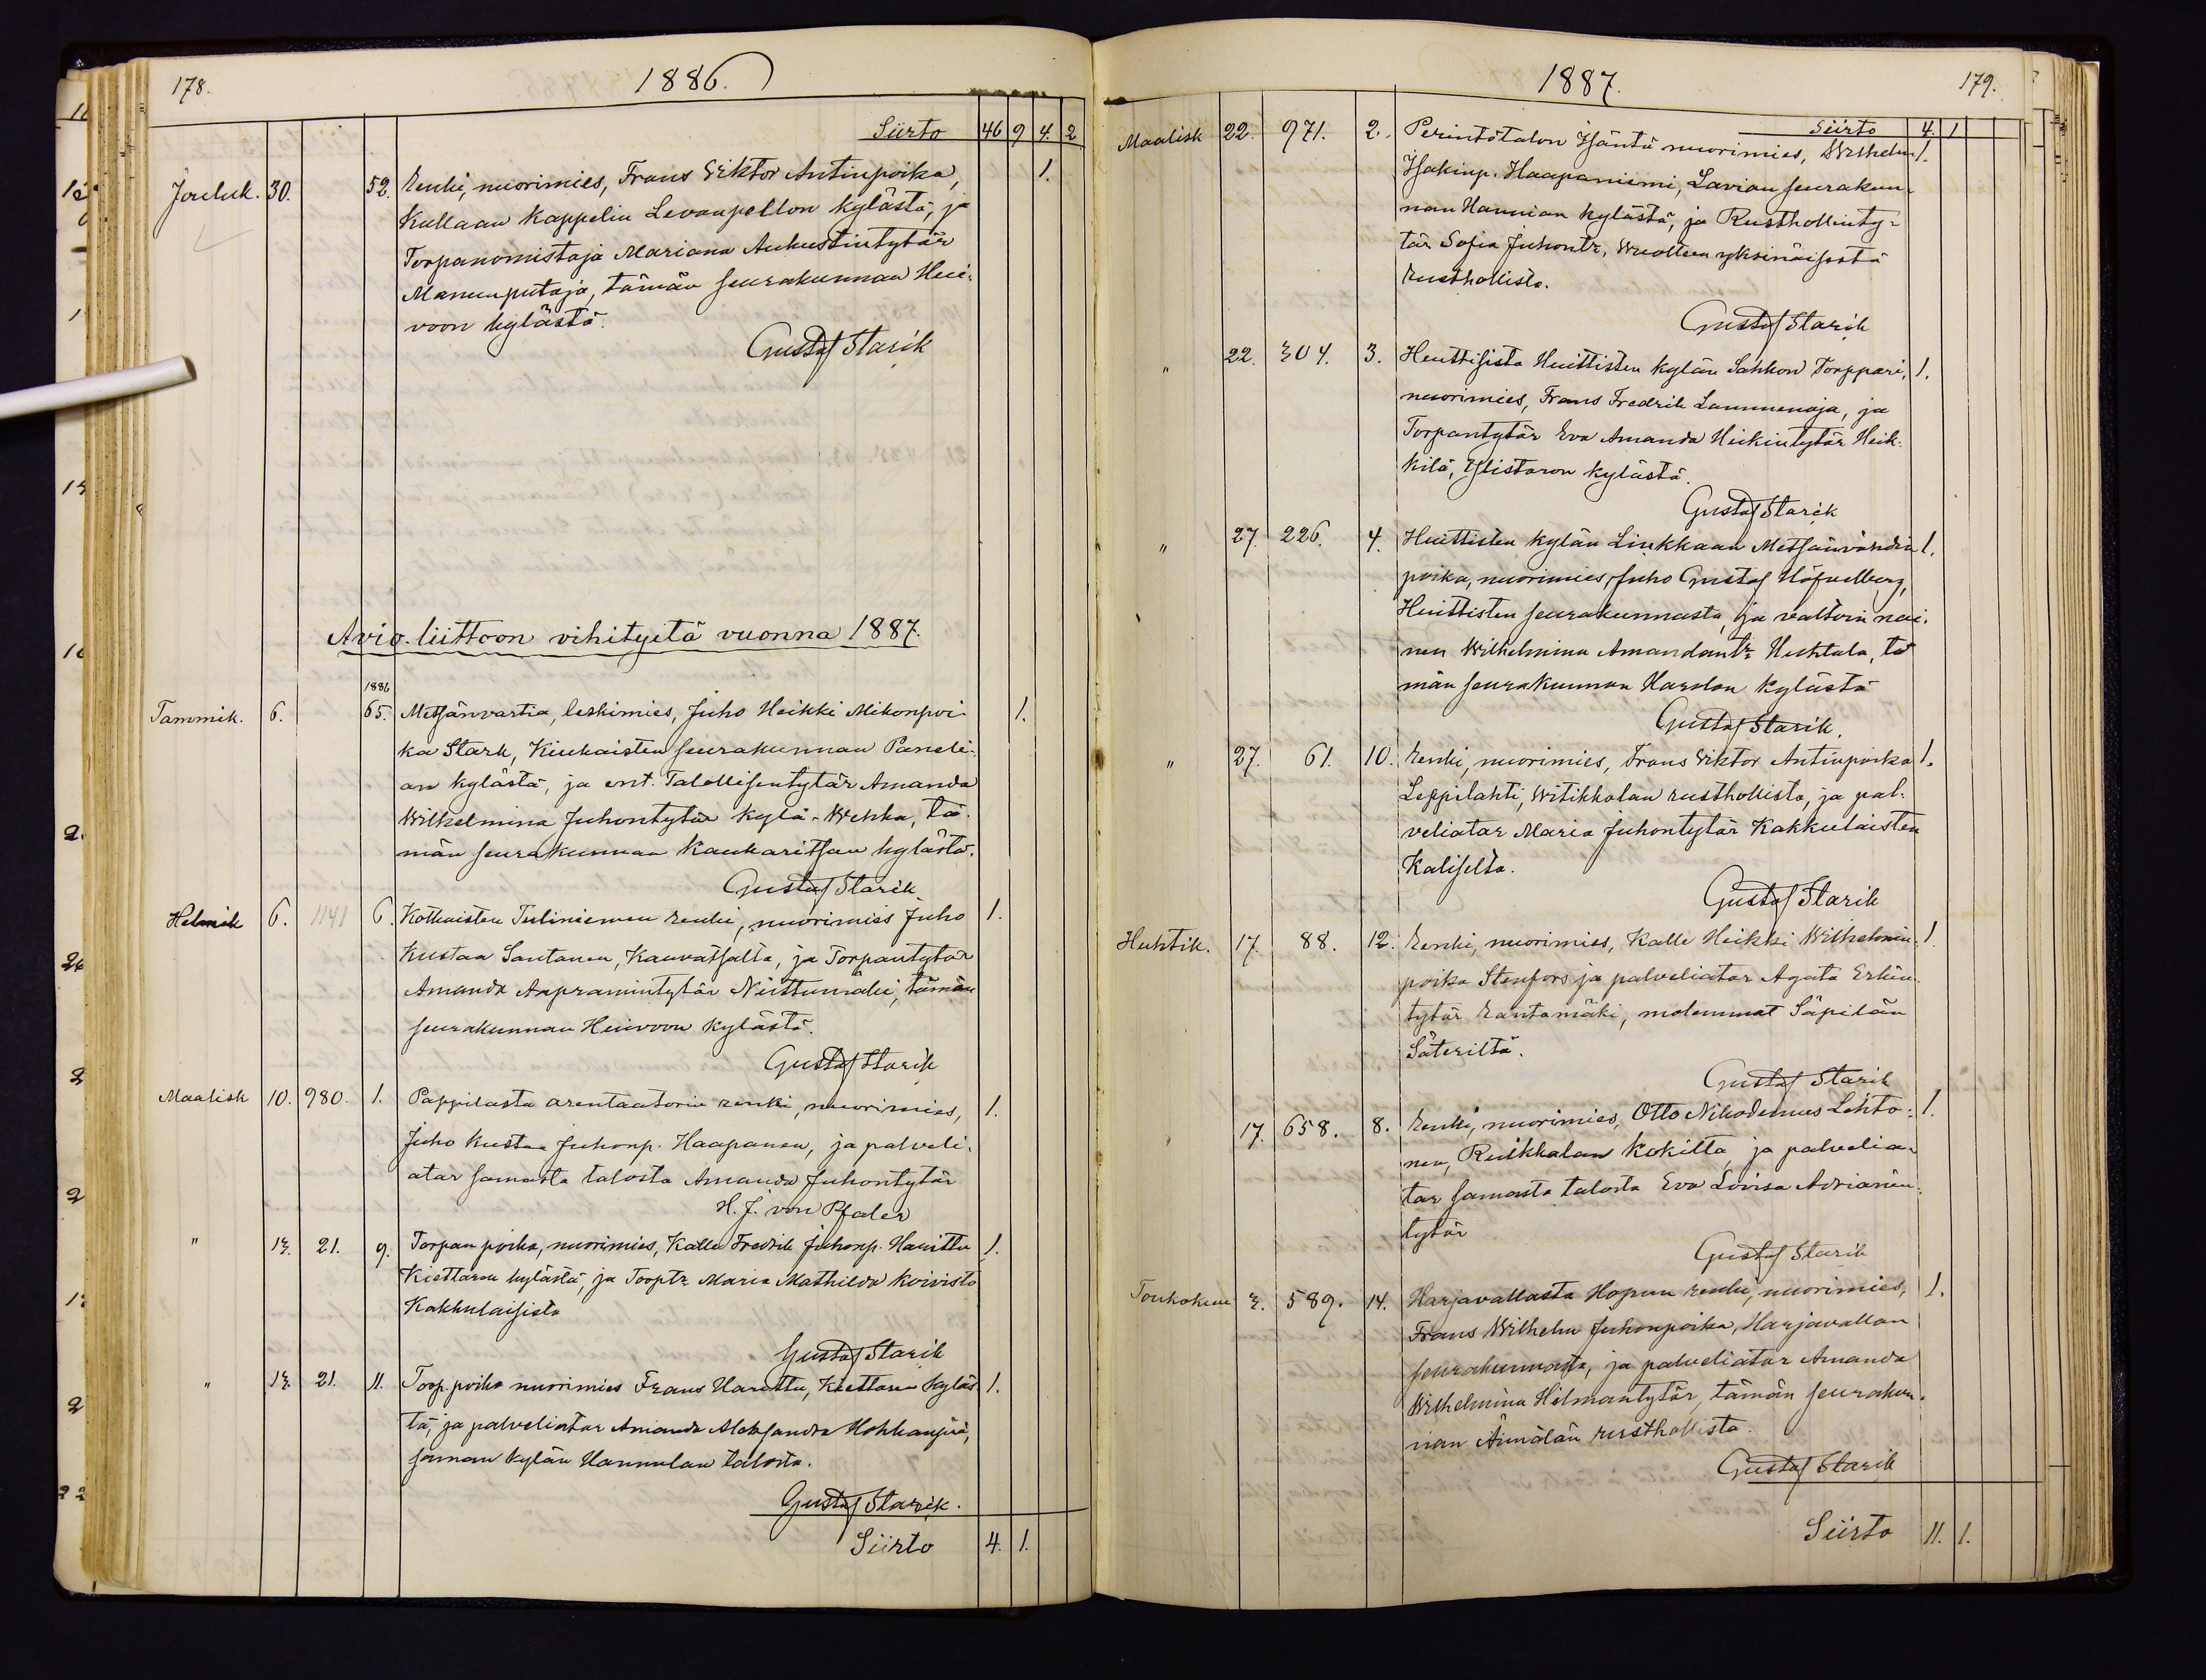 178.
1886.
Siirto 46 9 4. 2
Jouluk. 30. 52. Renki, nuorimies, Frans Viktor Antinpoika, 1.
Kullaan Kappelin Levanpellon kylästä, ja
Torpanomistaja Mariana Aukustintytär
Manunputaja, tämän seurakunnan Hui-
voon kylästä.
Gustaf Starik
Avio-liittoon vihityitä vuonna 1887.
1886
Tammik. 6. 65. Metsänvartia, leskimies, Juho Heikki Mikonpoi- 1.
ka Stark, Kiukaisten seurakunnan Paneli-
an kylästä, ja ent. Talollisentytär Amanda
Wilhelmina Juhontytär Kylä-Wehka, tä-
män seurakunnan Kaukaritsan kylästä.
Gustaf Starik
Helmik 6. 1141 6. Kotkaisten Tuliniemen renki, nuorimies Juho 1.
Kustaa Santanen, Kauvatsalta, ja Torpantytär
Amanda Aapramintytär Niittumäki, tämän
seurakunnan Huivoon kylästä.
Gustaf Starik
Maalisk 10. 980. 1. Pappilasta arentaatorin renki, nuorimies, 1.
Juho Kustaa Juhonp. Haapanen, ja palveli-
atar samasta talosta Amanda Juhontytär
H. J. von Pfaler
" 13. 21. 9. Torpan poika, nuorimies, Kalle Fredrik Juhonp. Haruttu 1.
Kiettaren kylästä, ja Torptr Maria Mathilda Koivisto
Kakkulaisista
Gustaf Starik
" 13. 21. 11. Torp. poika nuorimies Frans Haruttu, Kiettaren kyläs 1.
tä, ja palveliatar Amanda Aleksandra Hohkanjää,
saman kylän Hannulan talosta.
Gustaf Starik.
Siirto 4. 1.
1887.
179.
Siirto 4. 1
Maalisk 22. 971. 2. Perintötalon Isäntä nuorimies, Wilhelm 1.
Isakinp. Haapaniemi, Lavian seurakun-
nan Hannian kylästä, ja Rusthollinty-
tär Sofia Juhontr, Wuolteen yksinäisestä
Rusthollista.
Gustaf Starik
" 22. 304. 3. Huittisista Huittisten kylän Sahkon Torppari, 1.
nuorimies, Frans Fredrik Lammenoja, ja
Torpantytär Eva Amanda Heikintytär Heik-
kilä, Ylistaron kylästä.
Gustaf Starik
" 27. 226. 4. Huittisten kylän Linkkaan Metsänvahdin 1.
poika, nuorimies, Juho Gustaf Höfvelberg,
Huittisten seurakunnasta, ja valtoin nai-
nen Wilhelmina Amandantr Huhtala, tä
män seurakunnan Harolan kylästä
Gustaf Starik.
" 27. 61. 10. Renki, nuorimies, Frans Viktor Antinpoika 1.
Leppilahti, Witikkalan rusthollista, ja pal-
veliatar Maria Juhontytär Kakkulaisten
Kaliselta.
Gustaf Starik
Huhtik. 17. 88. 12. Renki, nuorimies, Kalle Heikki Wilhelmin- 1.
poika Stenfors ja palveliatar Agata Erkin-
tytär Rantamäki, molemmat Säpilän
Säteriltä.
Gustaf Starik
" 17. 658. 8. Renki, nuorimies, Otto Nikodemus Lehto- 1.
nen, Ruikkalan Kokilta, ja palvelia-
tar samasta talosta Eva Lovisa Adrianin-
tytär
Gustaf Starik
Toukokuu 3. 589. 14. Harjavallasta Hopun renki, nuorimies, 1.
Frans Wilhelm Juhonpoika, Harjavallan
seurakunnasta, ja palveliatar Amanda
Wilhelmina Hilmantytär, tämän seurakun-
nan Äimälän rusthollista.
Gustaf Starik
Siirto 11. 1.